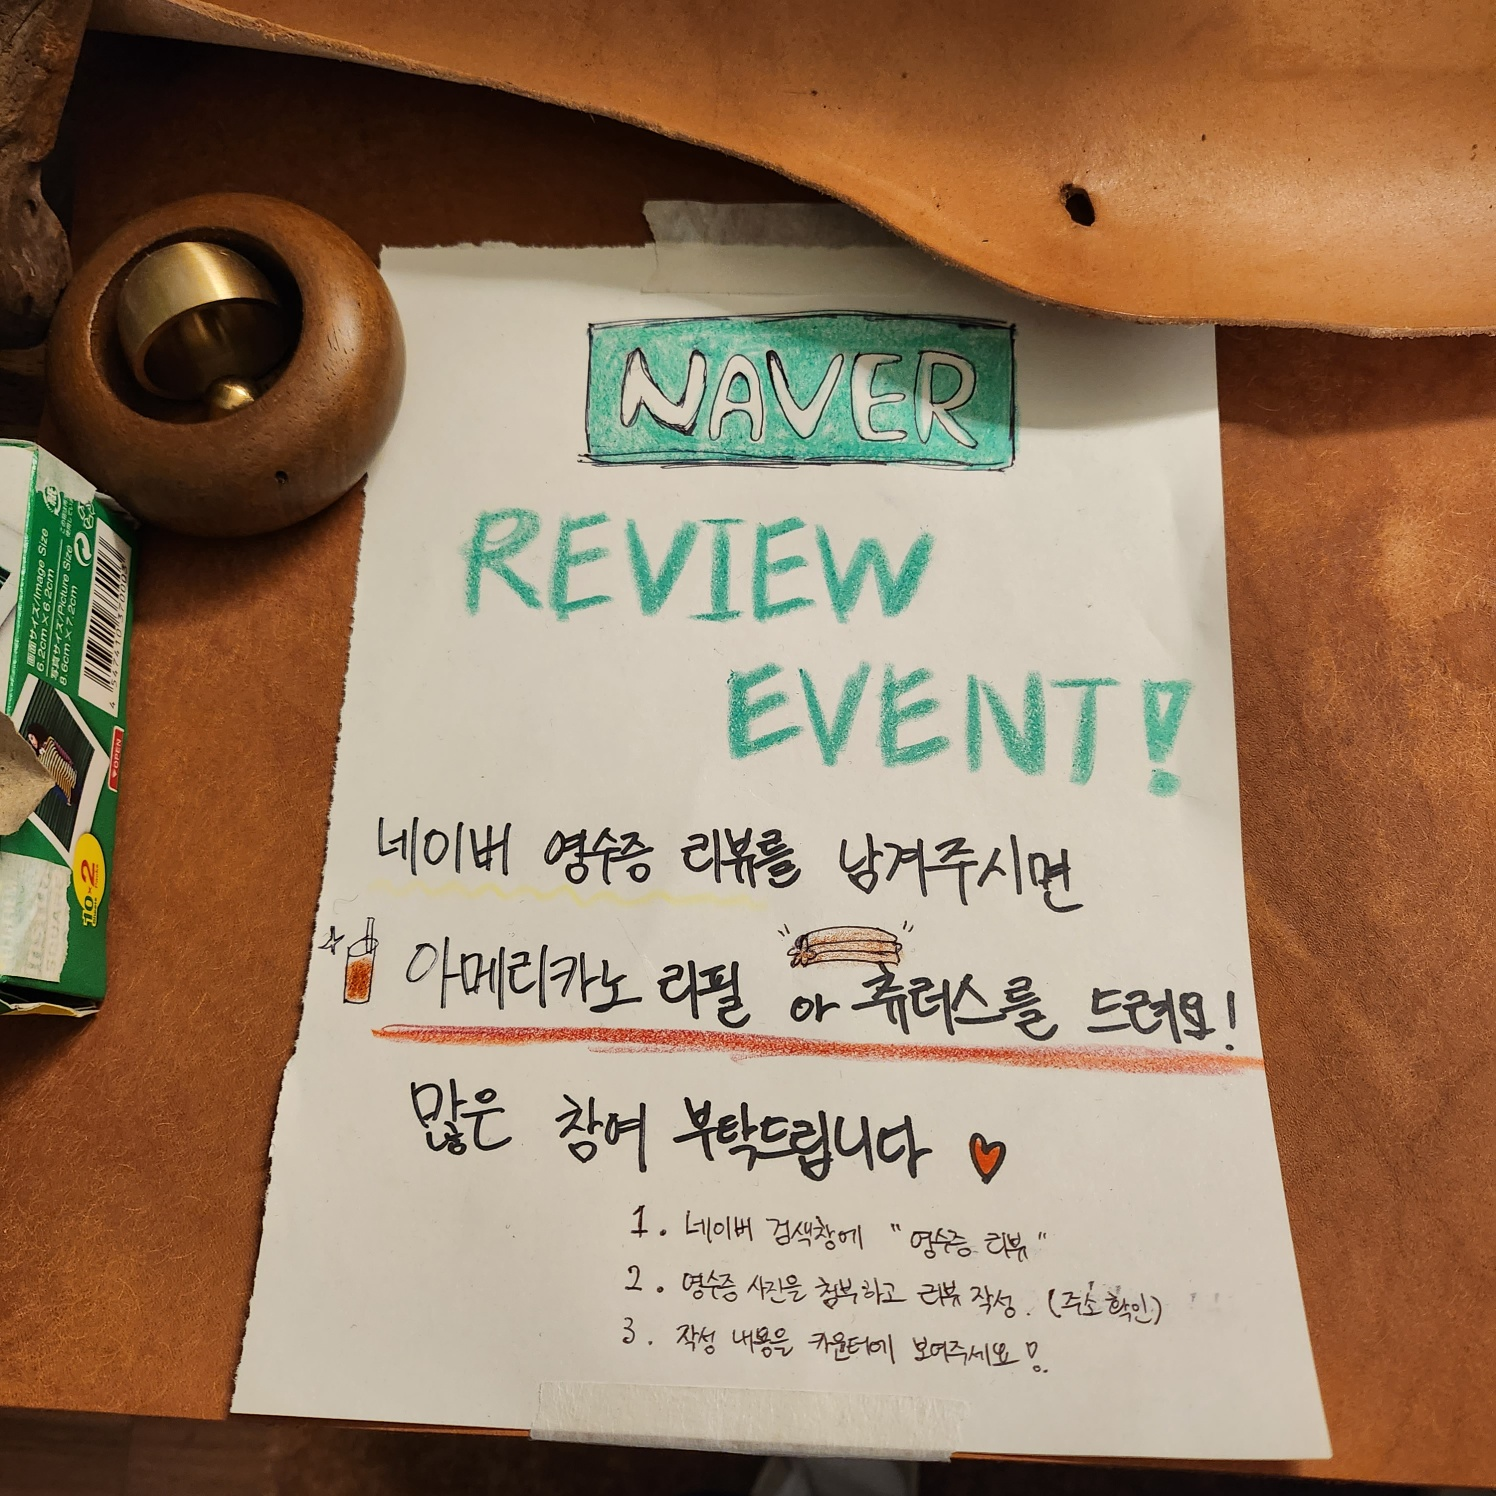 NAVER
REVIEW
EVENT!
네이버 영수증 리뷰를 남겨주시면
아메리카노 리필 or 츄러스를 드려요!
많은 참여 부탁드립니다
1. 네이버 검색창에 "영수증 리뷰"
2. 영수증 사진을 첨부하고 리뷰 작성. (주소 확인)
3. 작성 내용을 카운터에 보여주세요!
画面サイズ/Image Size
6.2cm×6.2cm
写真サイズ/Picture Size
8.6cm×7.2cm
OPEN
10×2